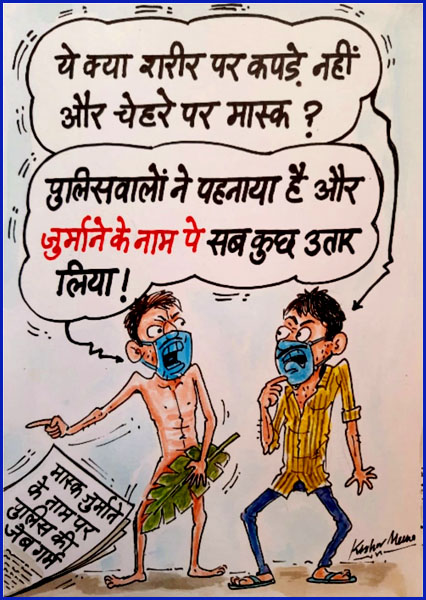 ये क्या शरीर पर कपड़े नहीं
और चेहरे पर मास्क ?
पुलिसवालों ने पहनाया है और
जुर्माने के नाम पे सब कुछ उतार
लिया !
मास्क जुर्माने
के नाम पर
पुलिस की
जेब गर्म
Keshav Meena